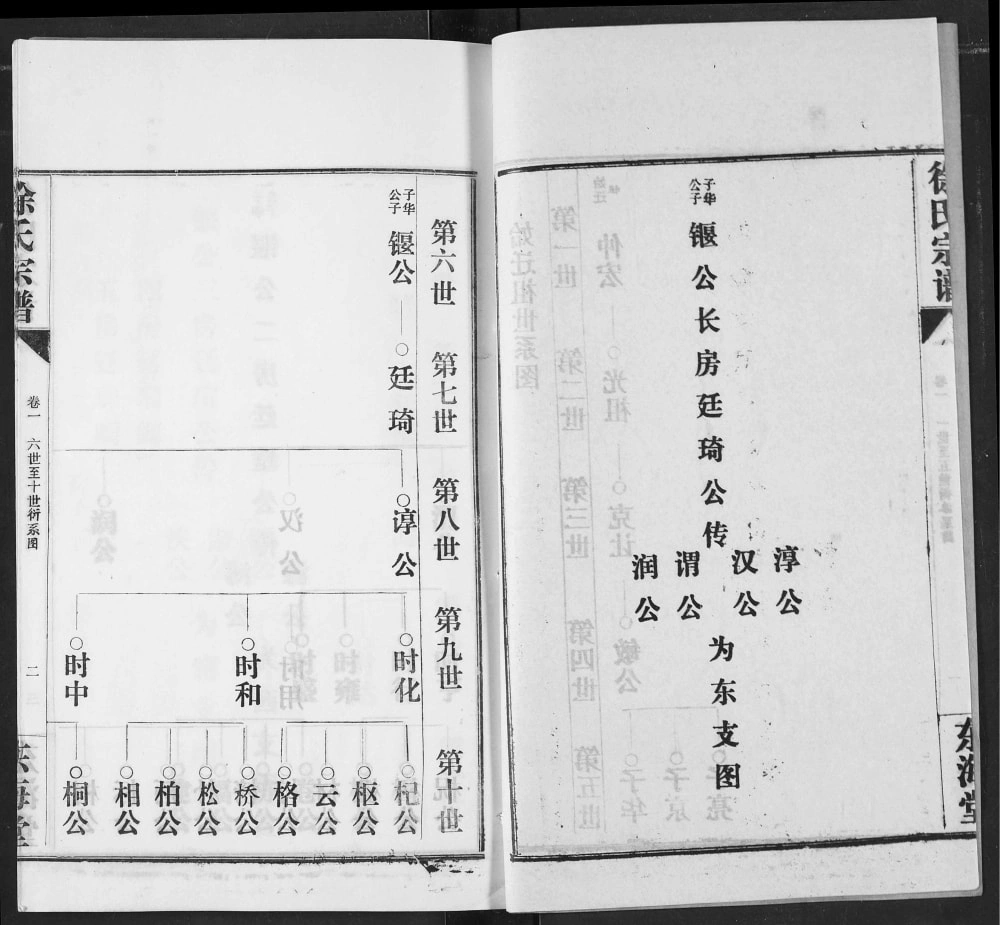 徐氏宗谱
东海堂
子华
公子
锻公长房廷琦公传
淳公
汉公
谓公
润公
为东支图
第六世
第七世
第八世
第九世
第十世
子华
公子
锻公
廷琦
淳公
时化
时和
时中
杞公
枢公
云公
格公
桥公
松公
柏公
相公
桐公
徐氏宗谱
卷一
六世至十世衍系图
二
东海堂